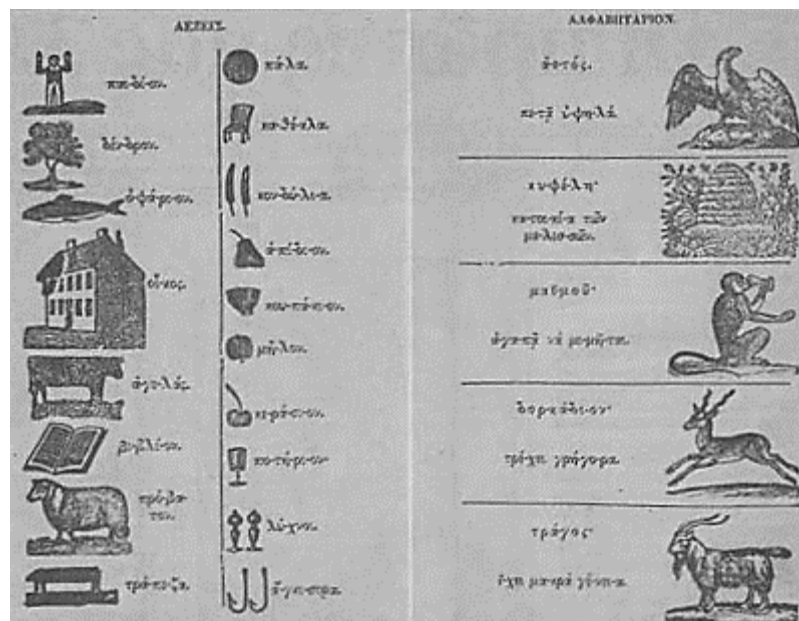 ΛΕΞΕΙΣ.
παι-δί-ον.
δέν-δρον.
ὀ-ψά-ρι-ον.
οἶ-κος.
ἀ-γε-λάς.
βι-βλί-ον.
πρό-βα-
τον.
τρά-πε-ζα.
πά-λα.
κα-θέ-κλα.
κον-δύ-λι-α.
ἀ-πί-δι-ον.
κου-πά-κι-ον.
μῆ-λον.
κε-ρά-σι-ον.
πο-τή-ρι-ον·
λύ-χνοι.
ἄ-γκι-στρα.
ΑΛΦΑΒΗΤΑΡΙΟΝ.
ἀ-ετός.
πε-τᾷ ὑ-ψη-λά.
κυ-ψέ-λη·
κα-τοι-κί-α τῶν
με-λισ-σῶν.
μαϊμοῦ·
ἀ-γα-πᾷ νὰ μι-μῆ-ται.
δορκάδι-ον·
τρέ-χει γρήγο-ρα.
τράγος·
ἔ-χει μα-κρὰ γένει-α.